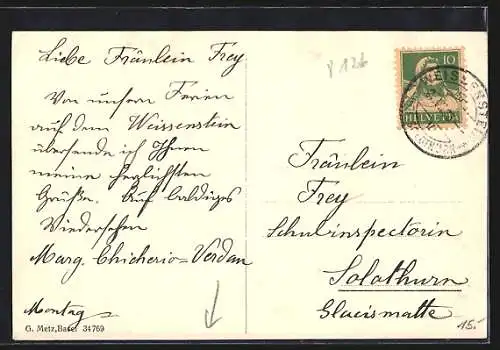 Liebe Fräulein Frey
Von unsern Ferien
auf dem Weissenstein
übersende ich Ihnen
meine herzlichsten
Grüße. Auf baldiges
Wiedersehen
Marg. Chicherio=Verdan
Montag
G. Metz, Basel 34769
10
HELVETIA
WEISSENSTEIN
Fräulein
Frey
Schulinspectorin
Solothurn
Glacismatte
15.-